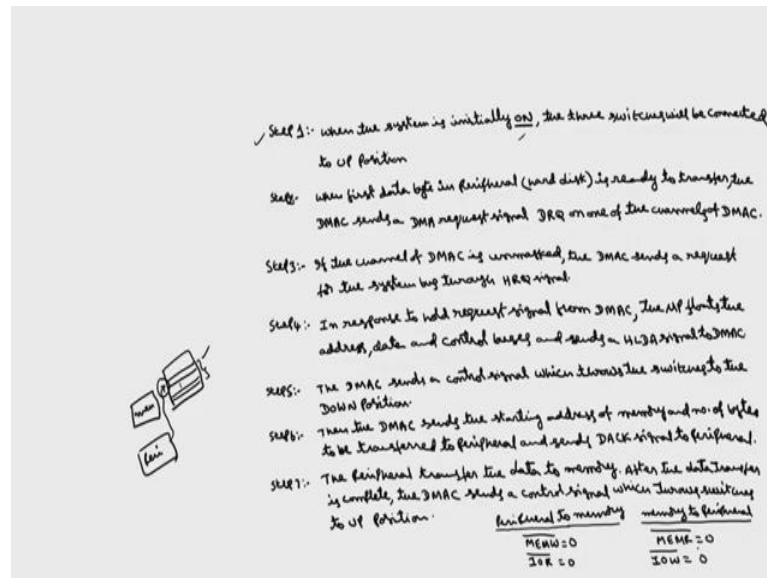 Step 1:- when the system is initially ON, the three switches will be connected
to UP Position
Step2:- when first data byte in Peripheral (hard disk) is ready to transfer, the
DMAC sends a DMA request signal DRQ on one of the channels of DMAC.
Step3:- If the channel of DMAC is unmasked, the DMAC sends a request
for the system bus through HRQ signal
Step4:- In response to hold request signal from DMAC, The MP floats the
address, data and control buses and sends a HLDA signal to DMAC
Step5:- The DMAC sends a control signal which throws the switches to the
DOWN Position.
Step6:- Then the DMAC sends the starting address of memory and no. of bytes
to be transferred to Peripheral and sends DACK signal to Peripheral.
Step7:- The Peripheral transfer the data to memory. After the data transfer
is complete, the DMAC sends a control signal which throws switches
to UP Position.
Peripheral to memory memory to Peripheral
MEMW=0 MEMR=0
IOR=0 IOW=0
Peri